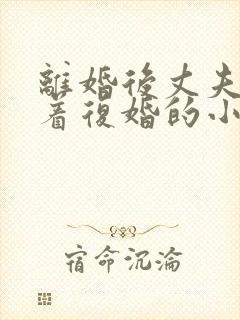 離婚後丈夫
着復婚的小
宿命沉淪